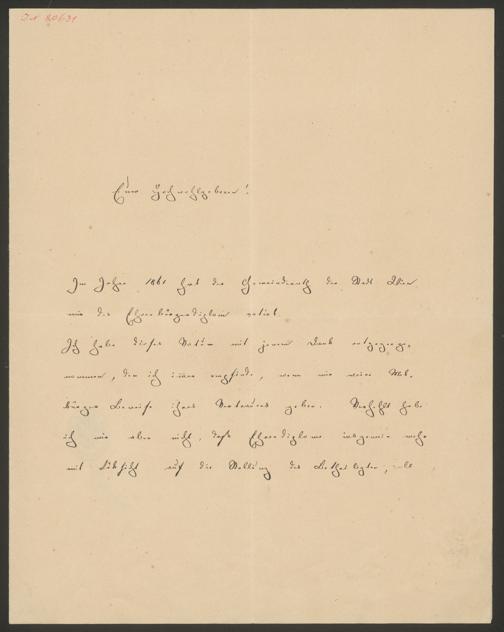 J.N. 80631
Euer Hochwohlgeboren!
Im Jahre 1861 hat der Gemeinderath der Stadt Wien
mir das Ehrenbürgerdiplom votirt.
Ich habe dieses Votum mit jenem Dank entgegenge-
nommen, den ich immer empfinde, wenn mir meine Mit-
bürger Beweise ihres Vertrauens geben. Verhehlt habe
ich mir aber nicht, daß Ehrendiplome insgemein mehr
mit Rücksicht auf die Stellung des Betheiligten, als